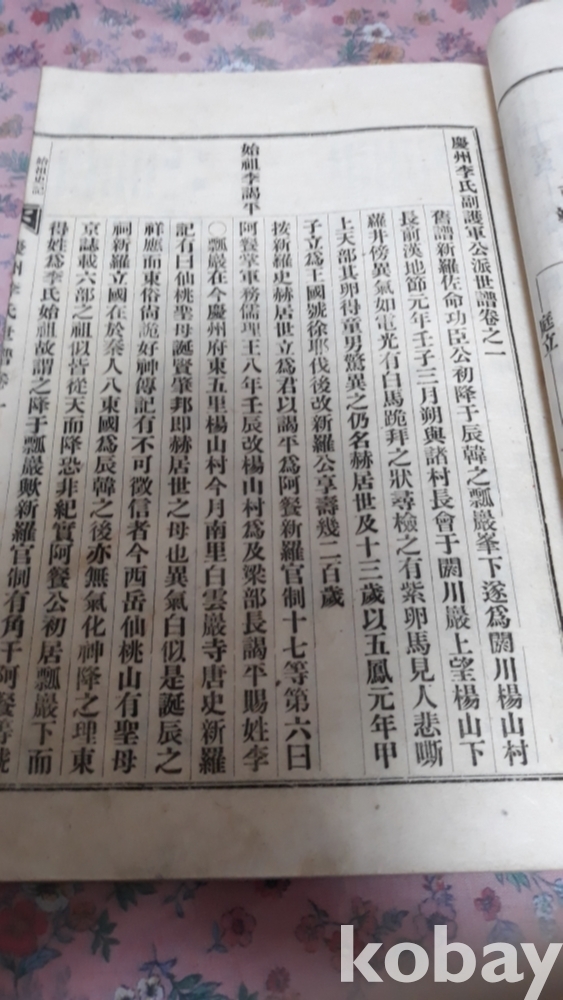 庭立
慶州李氏副護軍公派世譜卷之一
舊譜新羅佐命功臣公初降于辰韓之瓢巖峯下遂爲閼川楊山村
長前漢地節元年壬子三月朔與諸村長會于閼川巖上望楊山下
蘿井傍異氣如電光有白馬跪拜之狀尋檢之有紫卵馬見人悲嘶
上天部其卵得童男驚異之仍名赫居世及十三歲以五鳳元年甲
子立爲王國號徐耶伐後改新羅公享壽幾二百歲
始祖李謁平
按新羅史赫居世立爲君以謁平爲阿餐新羅官制十七等第六曰
阿餐掌軍務儒理王八年壬辰改楊山村爲及梁部長謁平賜姓李
〇瓢巖在今慶州府東五里楊山村今月南里白雲巖寺唐史新羅
記有曰仙桃聖母誕賢肇邦即赫居世之母也異氣白似是誕辰之
祥應而東俗尙詭好神傳記有不可徵信者今西岳仙桃山有聖母
祠新羅立國在於秦人八東國爲辰韓之後亦無氣化神降之理東
京誌載六部之祖似皆從天而降恐非紀實阿餐公初居瓢巖下而
得姓爲李氏始祖故謂之降于瓢巖歟新羅官制有角干阿餐等號
始祖史記
慶州李氏世譜卷一
kobay